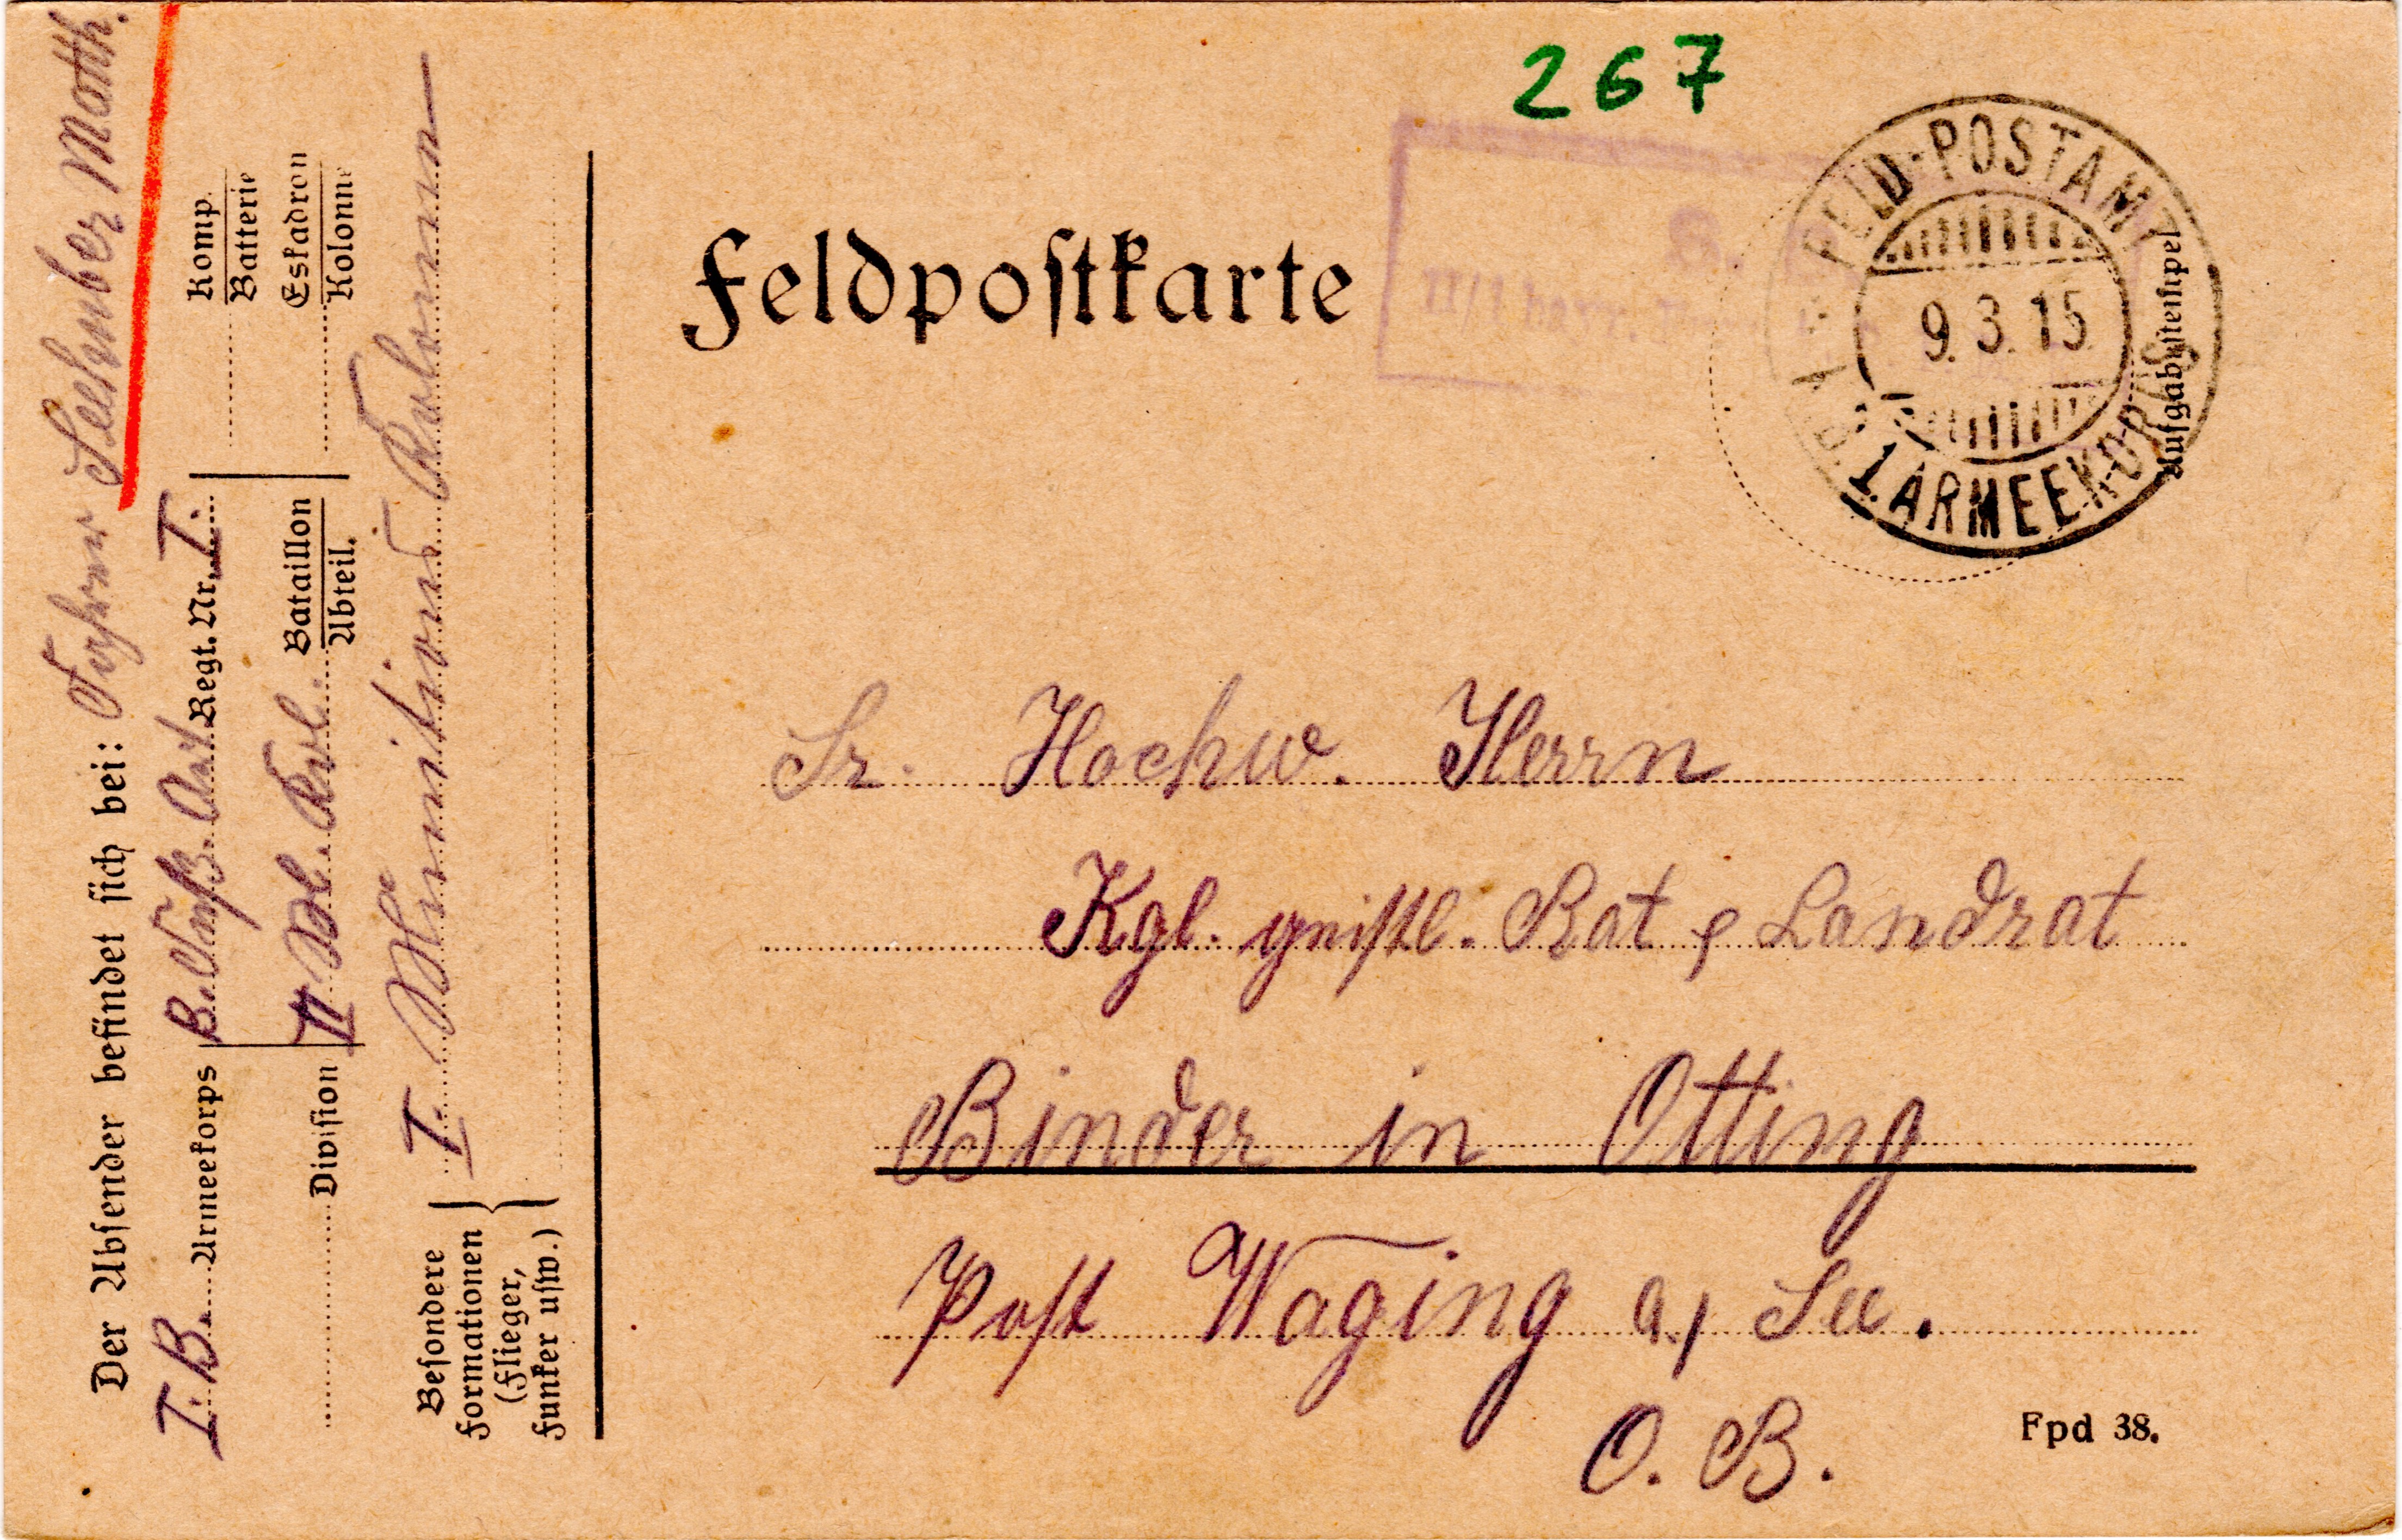 267
Feldpostkarte
FELD-POSTAMT
9.3.15
1. ARMEEKORPS
Aufgabestempel
Sr. Hochw. Herrn
Kgl. geistl. Rat & Landrat
Binder in Otting
Post Waging a/ See.
O. B.
Fpd 38.
Der Absender befindet sich bei: Fahrer Seehuber Matth.
I. B. Armeekorps B. Fuß. Art. Regt. Nr. I. Komp. Batterie
Division II Bataillon Abteil. Eskadron Kolonne
Besondere Formationen (Flieger, Funker usw.) I. Munitions Kolonnen